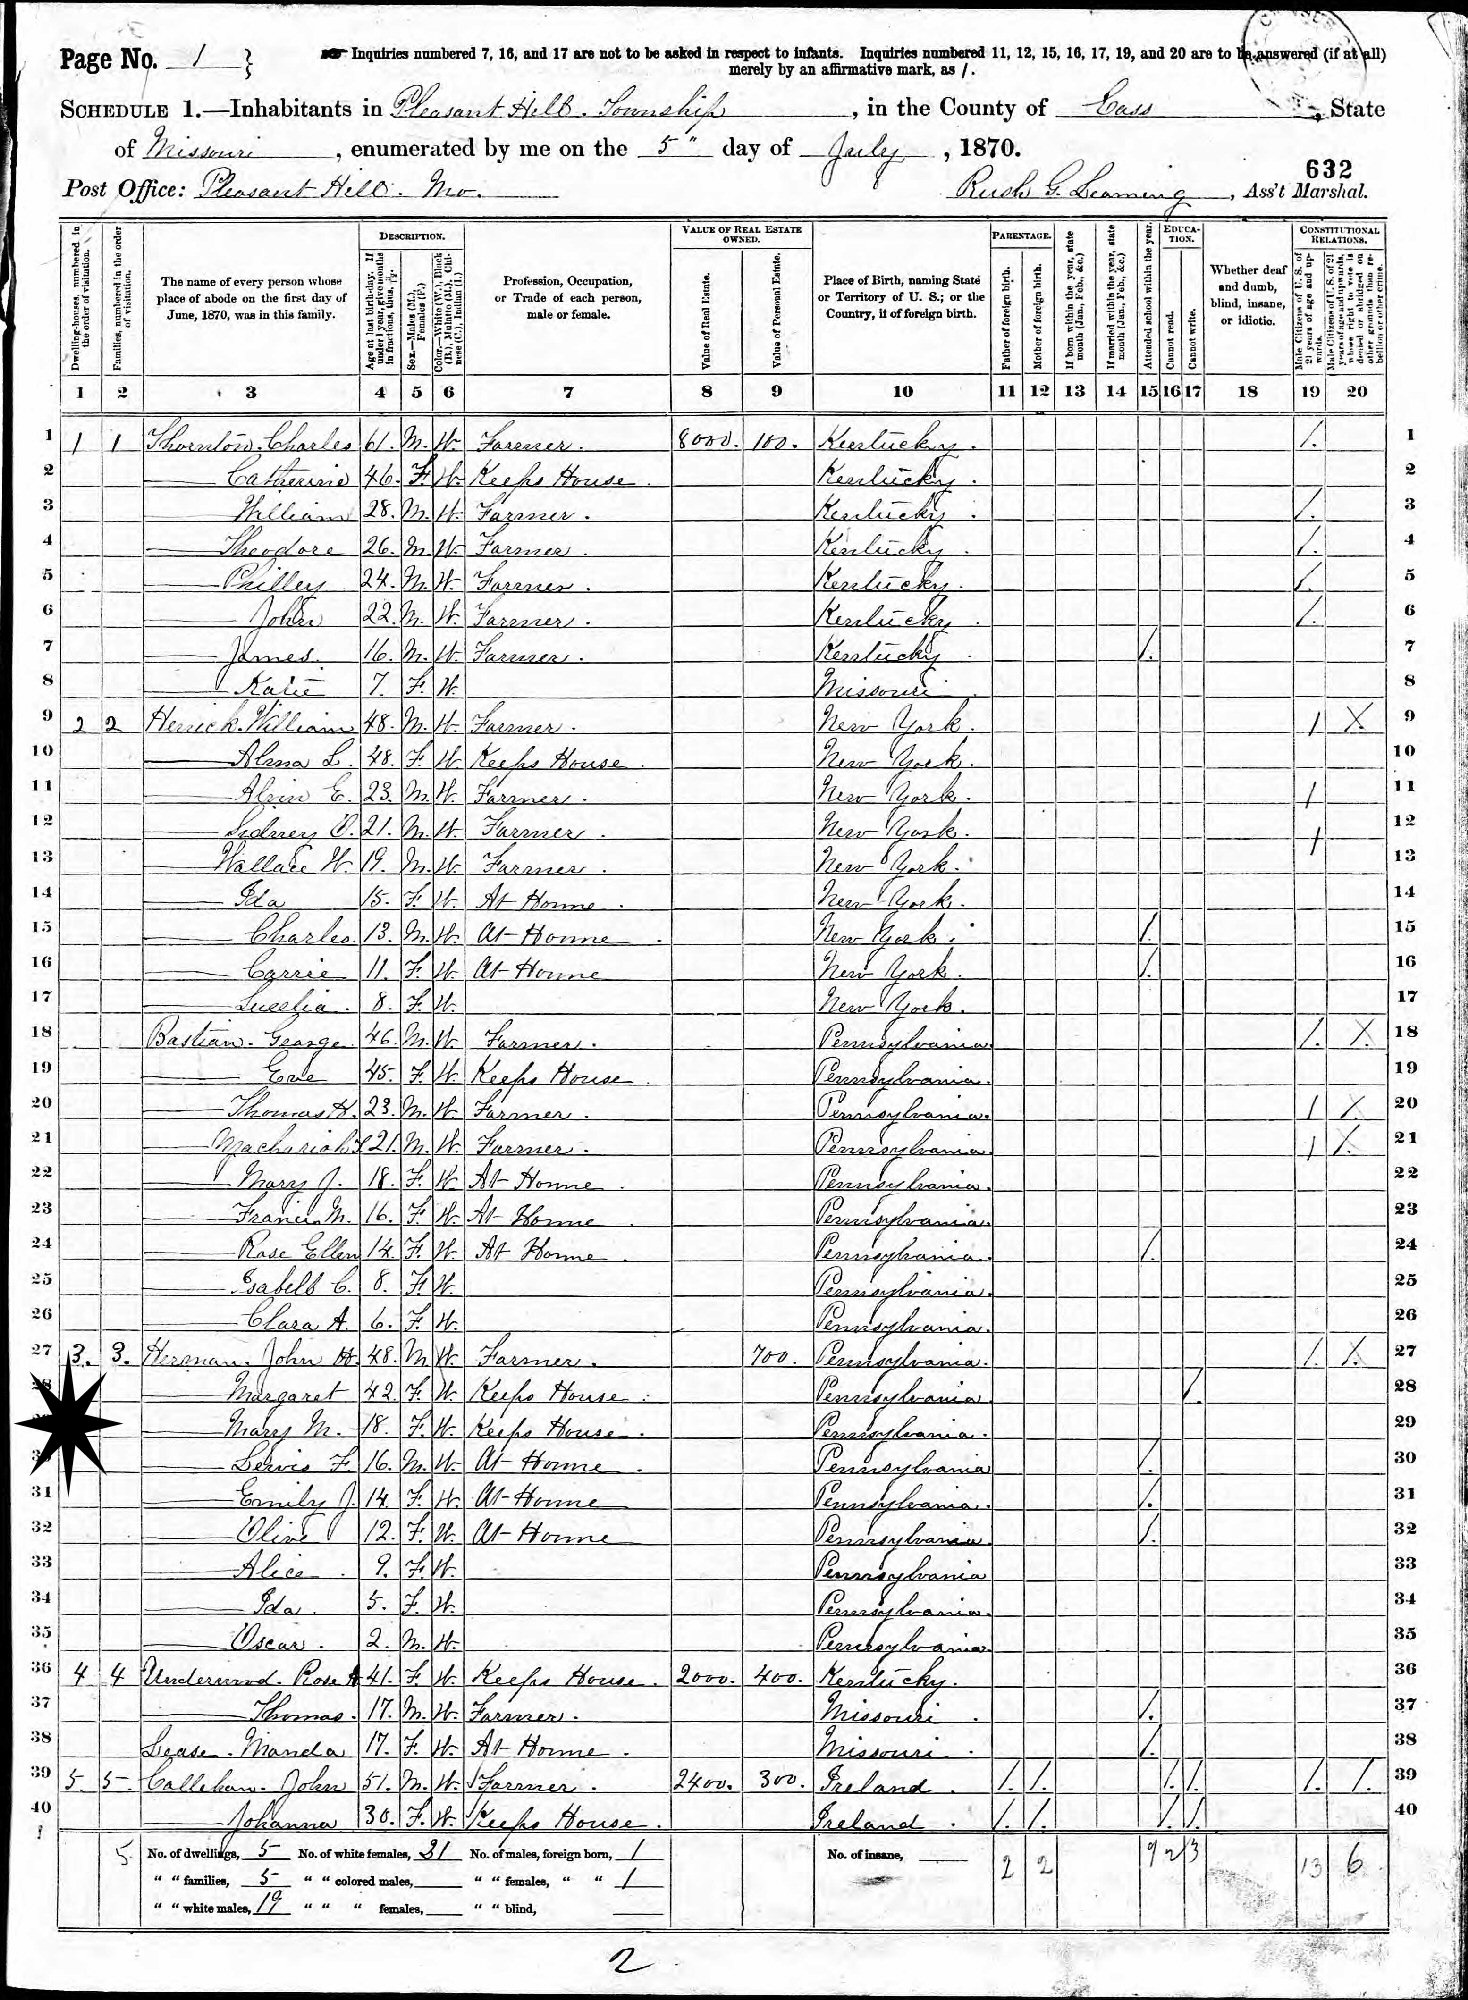 Page No. 1
Inquiries numbered 7, 16, and 17 are not to be asked in respect to infants. Inquiries numbered 11, 12, 15, 16, 17, 19, and 20 are to be answered (if at all)
merely by an affirmative mark, as /.
SCHEDULE 1.—Inhabitants in Pleasant Hill Township, in the County of Cass, State
of Missouri, enumerated by me on the 5" day of July, 1870.
632
Post Office: Pleasant Hill. Mo. Rush G. Leaming, Ass't Marshal.
Dwelling-houses, numbered in the order of visitation.
Families, numbered in the order of visitation.
The name of every person whose place of abode on the first day of June, 1870, was in this family.
DESCRIPTION.
Age at last birth-day. If under 1 year, give months in fractions, thus, 3/12
Sex.—Males (M.), Females (F.)
Color.—White (W.), Black (B.), Mulatto (M.), Chinese (C.), Indian (I.)
Profession, Occupation, or Trade of each person, male or female.
VALUE OF REAL ESTATE OWNED.
Value of Real Estate.
Value of Personal Estate.
Place of Birth, naming State or Territory of U. S.; or the Country, if of foreign birth.
PARENTAGE.
Father of foreign birth.
Mother of foreign birth.
If born within the year, state month (Jan., Feb., &c.)
If married within the year, state month (Jan., Feb., &c.)
Attended school within the year.
EDUCATION.
Cannot read.
Cannot write.
Whether deaf and dumb, blind, insane, or idiotic.
CONSTITUTIONAL RELATIONS.
Male Citizens of U. S. of 21 years of age and upwards.
Male Citizens of U. S. of 21 years of age and upwards, whose right to vote is denied or abridged on other grounds than rebellion or other crime.
1 2 3 4 5 6 7 8 9 10 11 12 13 14 15 16 17 18 19 20
1 1 1 Thornton. Charles 61. M. W. Farmer. 8000. 100. Kentucky. /. 1
2 Catherine 46. F. W. Keeps House. Kentucky. 2
3 William 28. M. W. Farmer. Kentucky. /. 3
4 Theodore 26. M. W. Farmer. Kentucky. /. 4
5 Philley 24. M. W. Farmer. Kentucky. /. 5
6 John 22. M. W. Farmer. Kentucky. /. 6
7 James. 16. M. W. Farmer. Kentucky. /. 7
8 Katie 7. F. W. Missouri. 8
9 2 2 Herrick. William 48. M. W. Farmer. New York. / X. 9
10 Alma L. 48. F. W. Keeps House. New York. 10
11 Alvin E. 23. M. W. Farmer. New York. / 11
12 Sidney O. 21. M. W. Farmer. New York. / 12
13 Wallace W. 19. M. W. Farmer. New York. 13
14 Ida 15. F. W. At Home. New York. 14
15 Charles. 13. M. W. At Home. New York. /. 15
16 Carrie 11. F. W. At Home New York. /. 16
17 Lucelia. 8. F. W. New York. 17
18 Bastian. George. 46. M. W. Farmer. Pennsylvania. /. X. 18
19 Eve 45. F. W. Keeps House. Pennsylvania. 19
20 Thomas H. 23. M. W. Farmer. Pennsylvania. / X. 20
21 21. M. W. Farmer. Pennsylvania. / X. 21
22 Mary J. 18. F. W. At Home. Pennsylvania. 22
23 Francis M. 16. F. W. At Home. Pennsylvania. 23
24 Rose Ellen 14. F. W. At Home. Pennsylvania. /. 24
25 Isabell C. 8. F. W. Pennsylvania. 25
26 Clara A. 6. F. W. Pennsylvania. 26
27 3. 3. Herman. John H. 48. M. W. Farmer. 700. Pennsylvania. /. X. 27
28 Margaret 42. F. W. Keeps House. Pennsylvania. /. 28
Mary M. 18. F. W. Keeps House. Pennsylvania. 29
Lewis F. 16. M. W. At Home. Pennsylvania /. 30
31 Emily J. 14. F. W. At Home Pennsylvania. /. 31
32 Olive 12. F. W. At Home Pennsylvania. /. 32
33 Alice. 9. F. W. Pennsylvania 33
34 Ida. 5. F. W. Pennsylvania. 34
35 Oscar. 2. M. W. Pennsylvania. 35
36 4 4 Underwood. Rose A 41. F. W. Keeps House. 2000. 400. Kentucky. 36
37 Thomas. 17. M. W. Farmer. Missouri. /. 37
38 Lease. Manda 17. F. W. At Home. Missouri. /. 38
39 5 5 Callehan. John 51. M. W. Farmer. 2400. 300. Ireland. /. /. /. /. /. /. 39
40 Johanna 30. F. W. Keeps House. Ireland. /. /. /. /. 40
5 No. of dwellings, 5 No. of white females, 21 No. of males, foreign born, 1 No. of insane, 2 2 9 2 3 13 6
" " families, 5 " " colored males, " " females, " " 1
" " white males, 19 " " " females, " " blind,
2